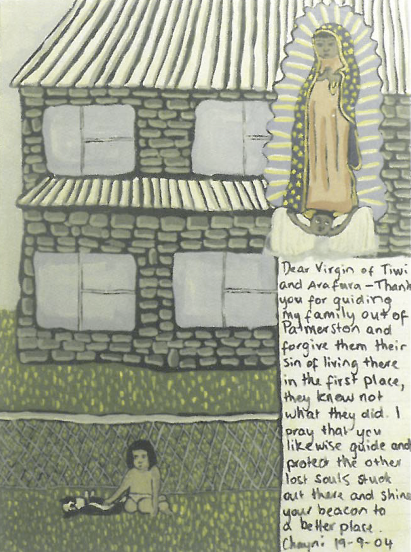 Dear Virgin of Tiwi
and Arafura – Thank
you for guiding
my family out of
Palmerston and
forgive them their
sin of living there
in the first place,
they knew not
what they did. I
pray that you
likewise guide and
protect the other
lost souls stuck
out there and shine
your beacon to
a better place.
Chayni 19-9-04